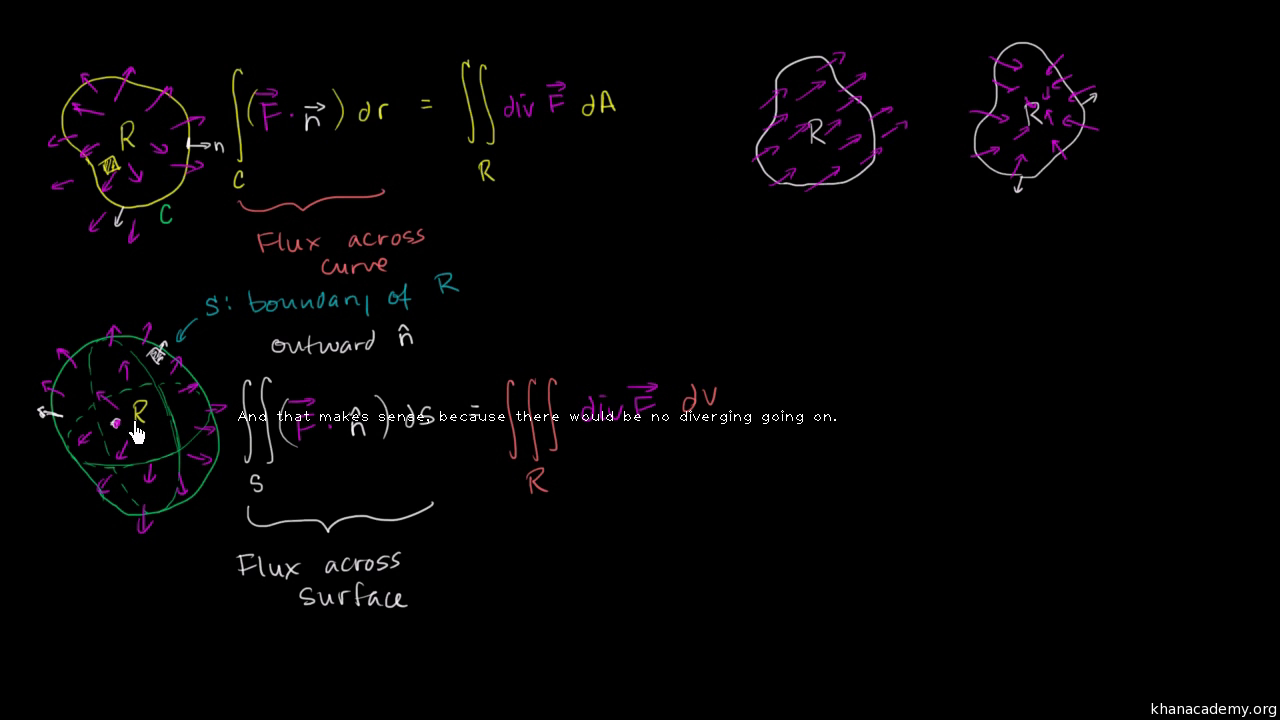 R
n
C
∫_C (F⃗ · n⃗) dr = ∬_R div F⃗ dA
Flux across
curve
S: boundary of R
outward n̂
R
∬_S (F⃗ · n̂) ds = ∭_R div F⃗ dV
And that makes sense, because there would be no diverging going on.
Flux across
surface
R
R
khanacademy.org